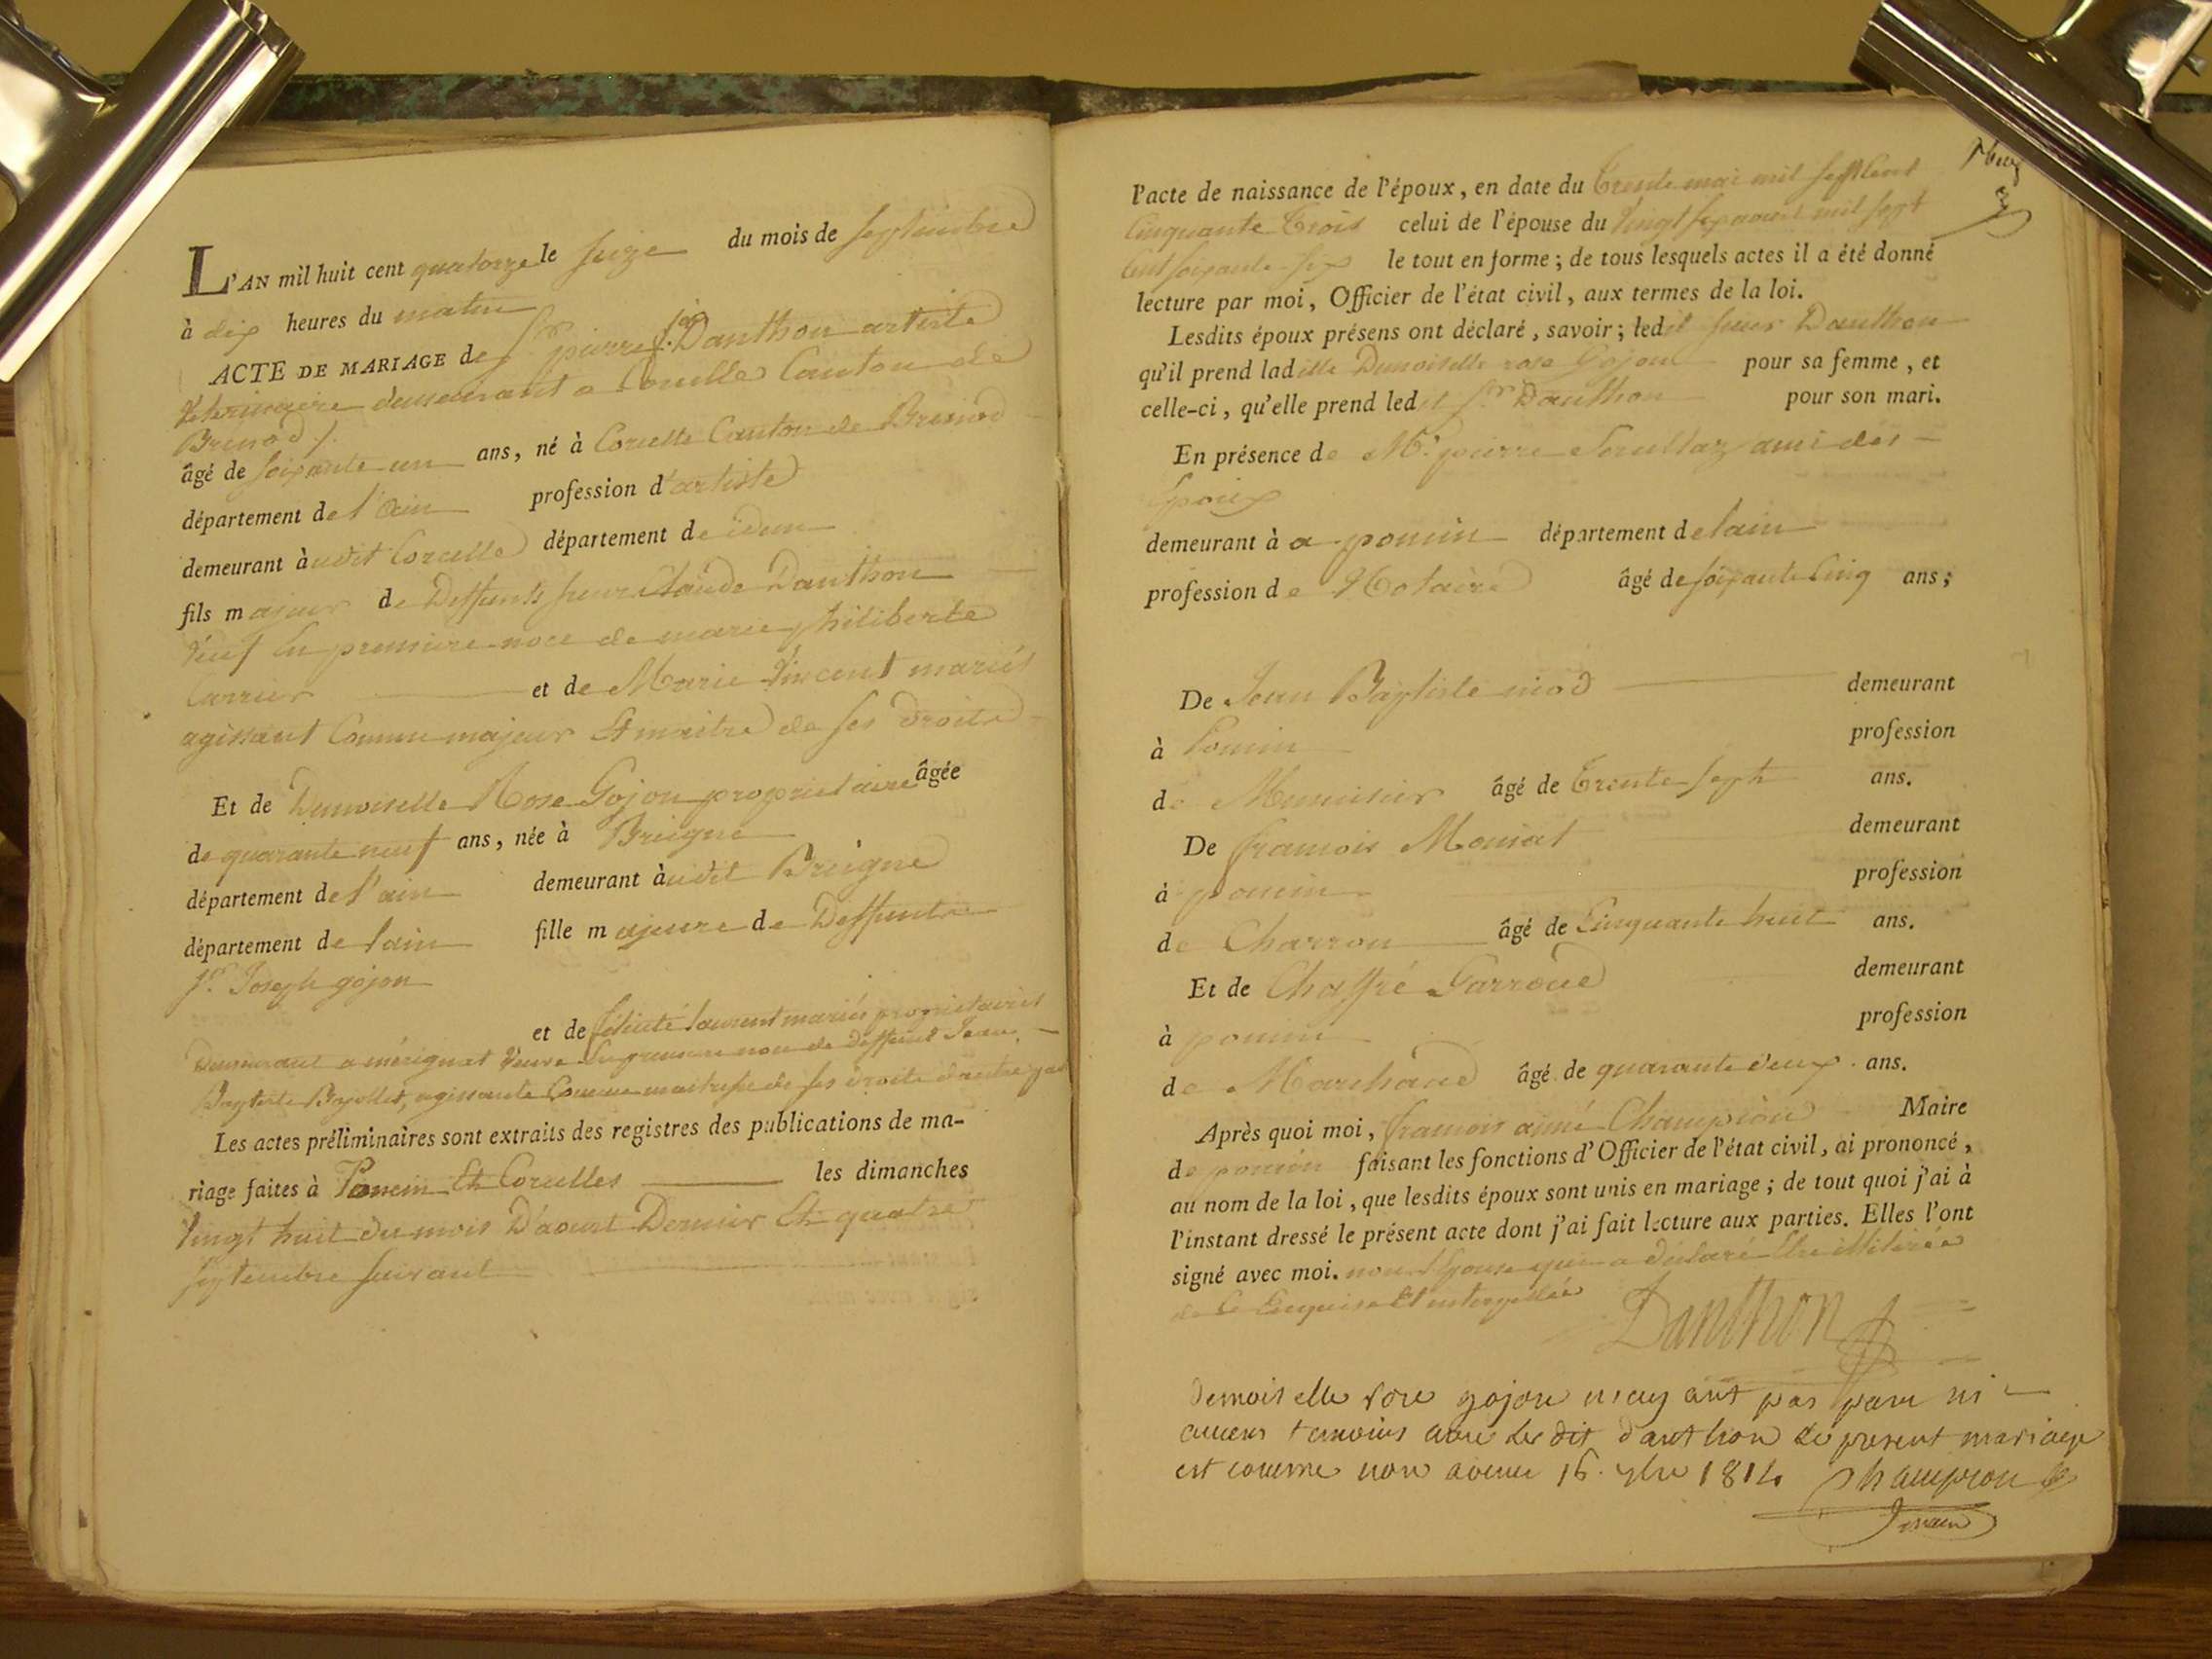 L'AN mil huit cent quatorze le seize du mois de septembre
à dix heures du matin
ACTE DE MARIAGE de Sr. pierre f. Danthon artiste
Veterinaire demeurant a Corcelle Canton de
Brenod /.
âgé de soixante un ans, né à Corcelle Canton de Brenod
département de l'ain profession d'artiste
demeurant audit Corcelle département de idem
fils majeur de Deffunts sieur Claude Danthon
Veuf En premiere noce de marie philiberte
Carrier et de Marie Vincent mariés
agissant Comme majeur Et maitre de ses droits
Et de Demoiselle Rose Gojon propriétaire âgée
de quarante neuf ans, née à Breigne
département de l'ain demeurant audit Breigne
département de lain fille majeure de Deffunts
Sr. Joseph gojon
et de félicité laurent mariés propriétaires
Demeurant a mérignat Veuve En premiere noce de deffunt Jean
Baptiste agissante Comme maitresse de ses droits d'autre part
Les actes préliminaires sont extraits des registres des publications de ma-
riage faites à Poncin Et Corcelles les dimanches
vingt huit du mois D'aoust Dernier Et quatre
septembre suivant
l'acte de naissance de l'époux, en date du trente mai mil sept Cent
Cinquante trois celui de l'épouse du vingt sept mil sept
Cent soixante six le tout en forme; de tous lesquels actes il a été donné
lecture par moi, Officier de l'état civil, aux termes de la loi.
Lesdits époux présens ont déclaré, savoir; ledit sieur Danthon
qu'il prend ladille Demoiselle rose Gojon pour sa femme, et
celle-ci, qu'elle prend ledit Sr. Danthon pour son mari.
En présence de Mr. pierre ami des
Epoux
demeurant à a poncin département de lain
profession de Notaire âgé de soixante Cinq ans;
De Jean Baptiste niod demeurant
à Poncin profession
de Menuisier âgé de trente sept ans.
De francois Moniat demeurant
à poncin profession
de Charron âgé de Cinquante huit ans.
Et de Chaffré Garroud demeurant
à poncin profession
de Marchand âgé de quarante deux ans.
Après quoi moi, francois aimé Champion Maire
de poncin faisant les fonctions d'Officier de l'état civil, ai prononcé,
au nom de la loi, que lesdits époux sont unis en mariage; de tout quoi j'ai à
l'instant dressé le présent acte dont j'ai fait lecture aux parties. Elles l'ont
signé avec moi. non L'Epouse qui a declaré Etre illitérée
de ce Enquise Et interpellée
Danthon
demoiselle rose gojon n'ayant pas paru ni
aucuns temoins avec le dit d'anthon le present mariage
est comme non avenu 16. 7bre 1814 Champion